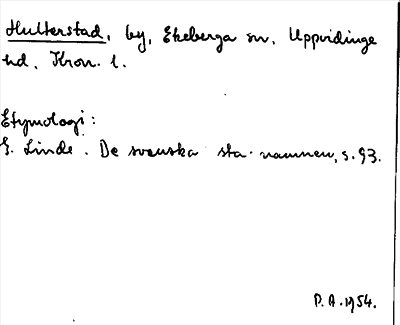 Hulterstad, by, Ekeberga sn, Uppvidinge
hd, Kron. l.
Etymologi:
G. Linde. De svenska sta-namnen, s. 93.
P.A. 1954.